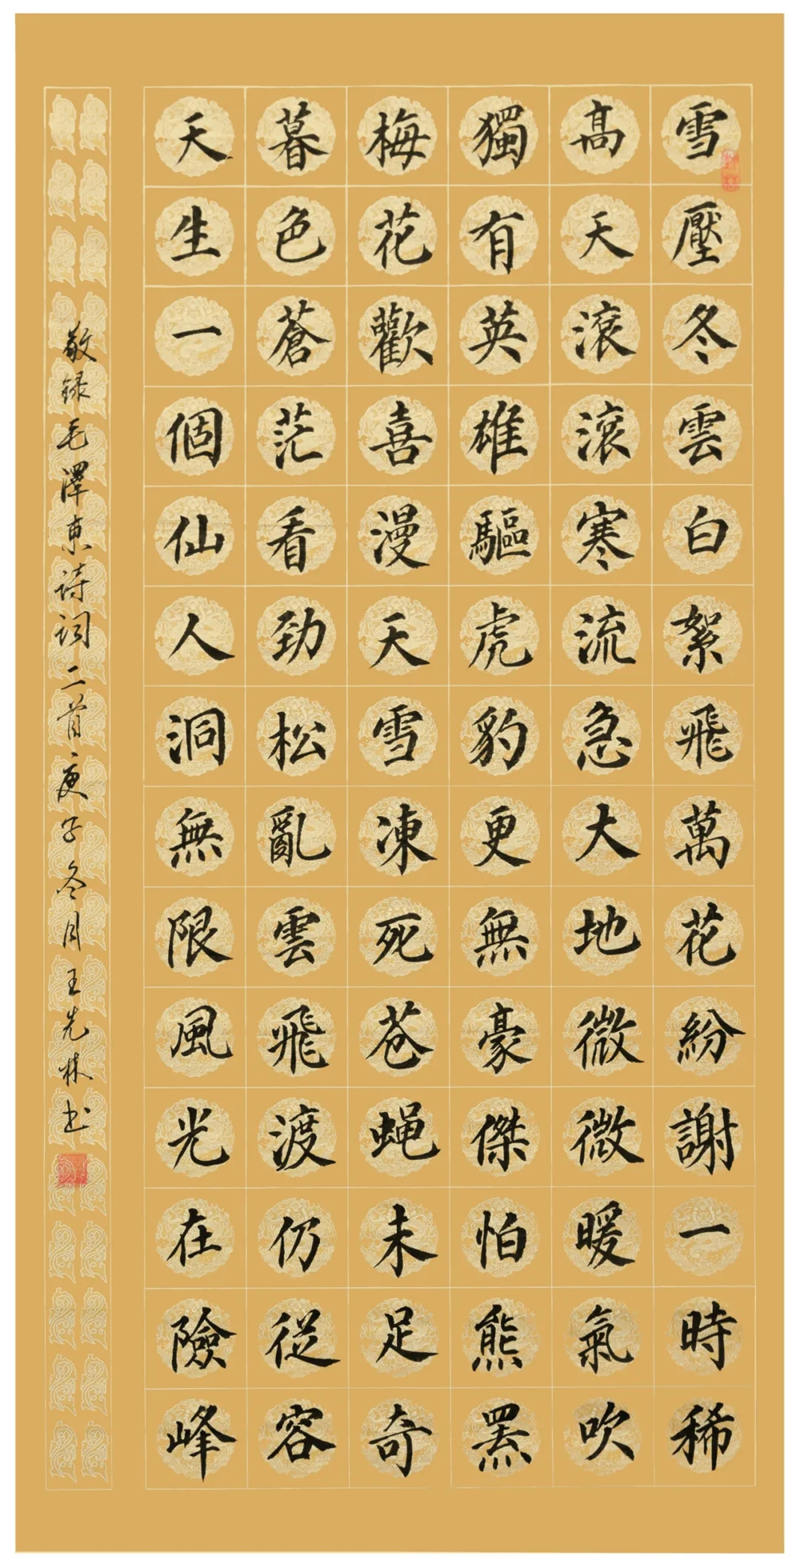 雪壓冬雲白絮飛萬花紛謝一時稀
髙天滾滾寒流急大地微微暖氣吹
獨有英雄驅虎豹更無豪傑怕熊羆
梅花歡喜漫天雪凍死苍蝇未足奇
暮色蒼茫看劲松亂雲飛渡仍從容
天生一個仙人洞無限風光在險峰
敬録毛澤東诗词二首庚子冬月王先林书